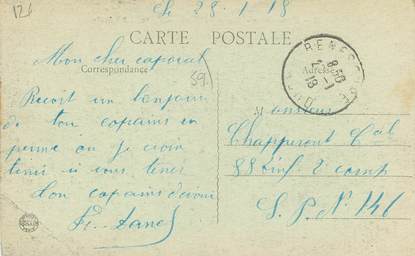 126
le 28-1-18
CARTE POSTALE
Correspondance
Adresse
59.
RENESCURE
8 30
2-1
18
Mon cher caporal
Recoit un bonjour
de ton copains en
perme ou je crois
tenir si vous tenez
Ton copains
Monsieur
Chapperont Cal
88 Inf. 2 comp
S. P. N° 146